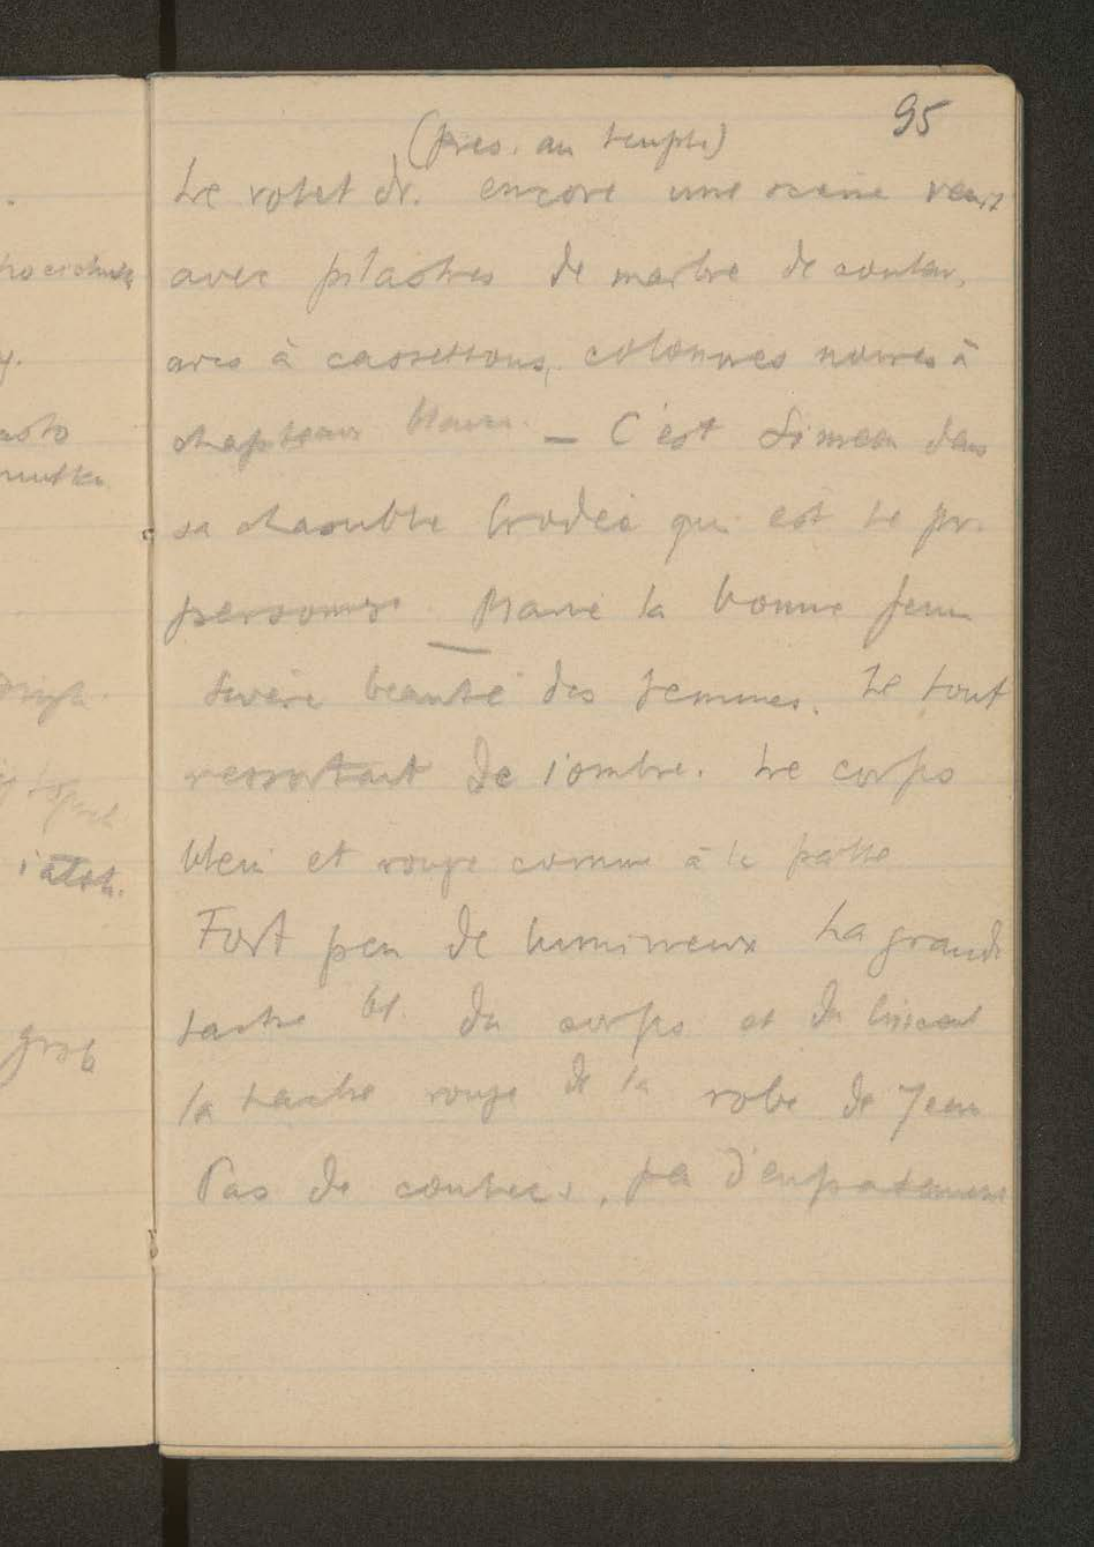 95
(pres. au temple)
Le volet dr. encore une scène
avec pilastres de marbre de couleur,
arcs à cassettons, colonnes noires à
chapiteaux blancs. — C'est Simeon dans
sa chasuble brodée qui est le pr.
personnage Marie la bonne femme
Sévère beauté des femmes. Le tout
ressortant de l'ombre. Le corps
bleu et rouge comme à la
Fort peu de lumineux La grande
tache bl. du corps et du linceul
la tache rouge de la robe de Jean
Pas de , pas d'empatements